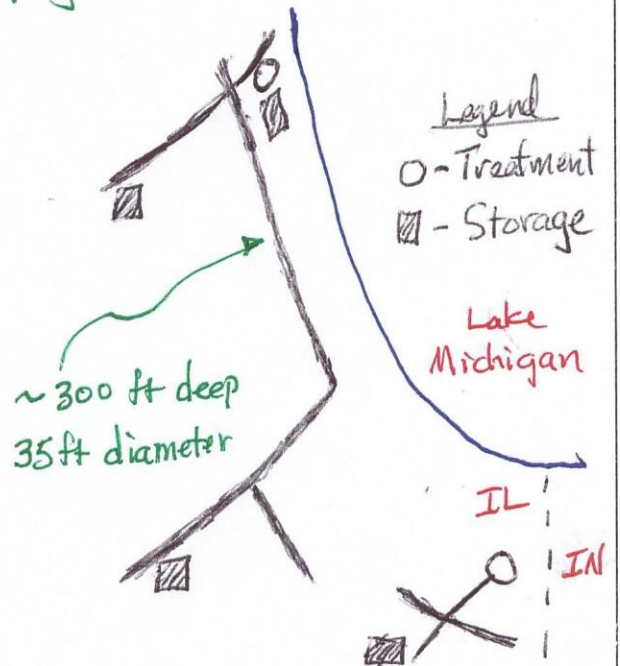 Legend
O - Treatment
▨ - Storage
Lake
Michigan
~300 ft deep
35ft diameter
IL
IN